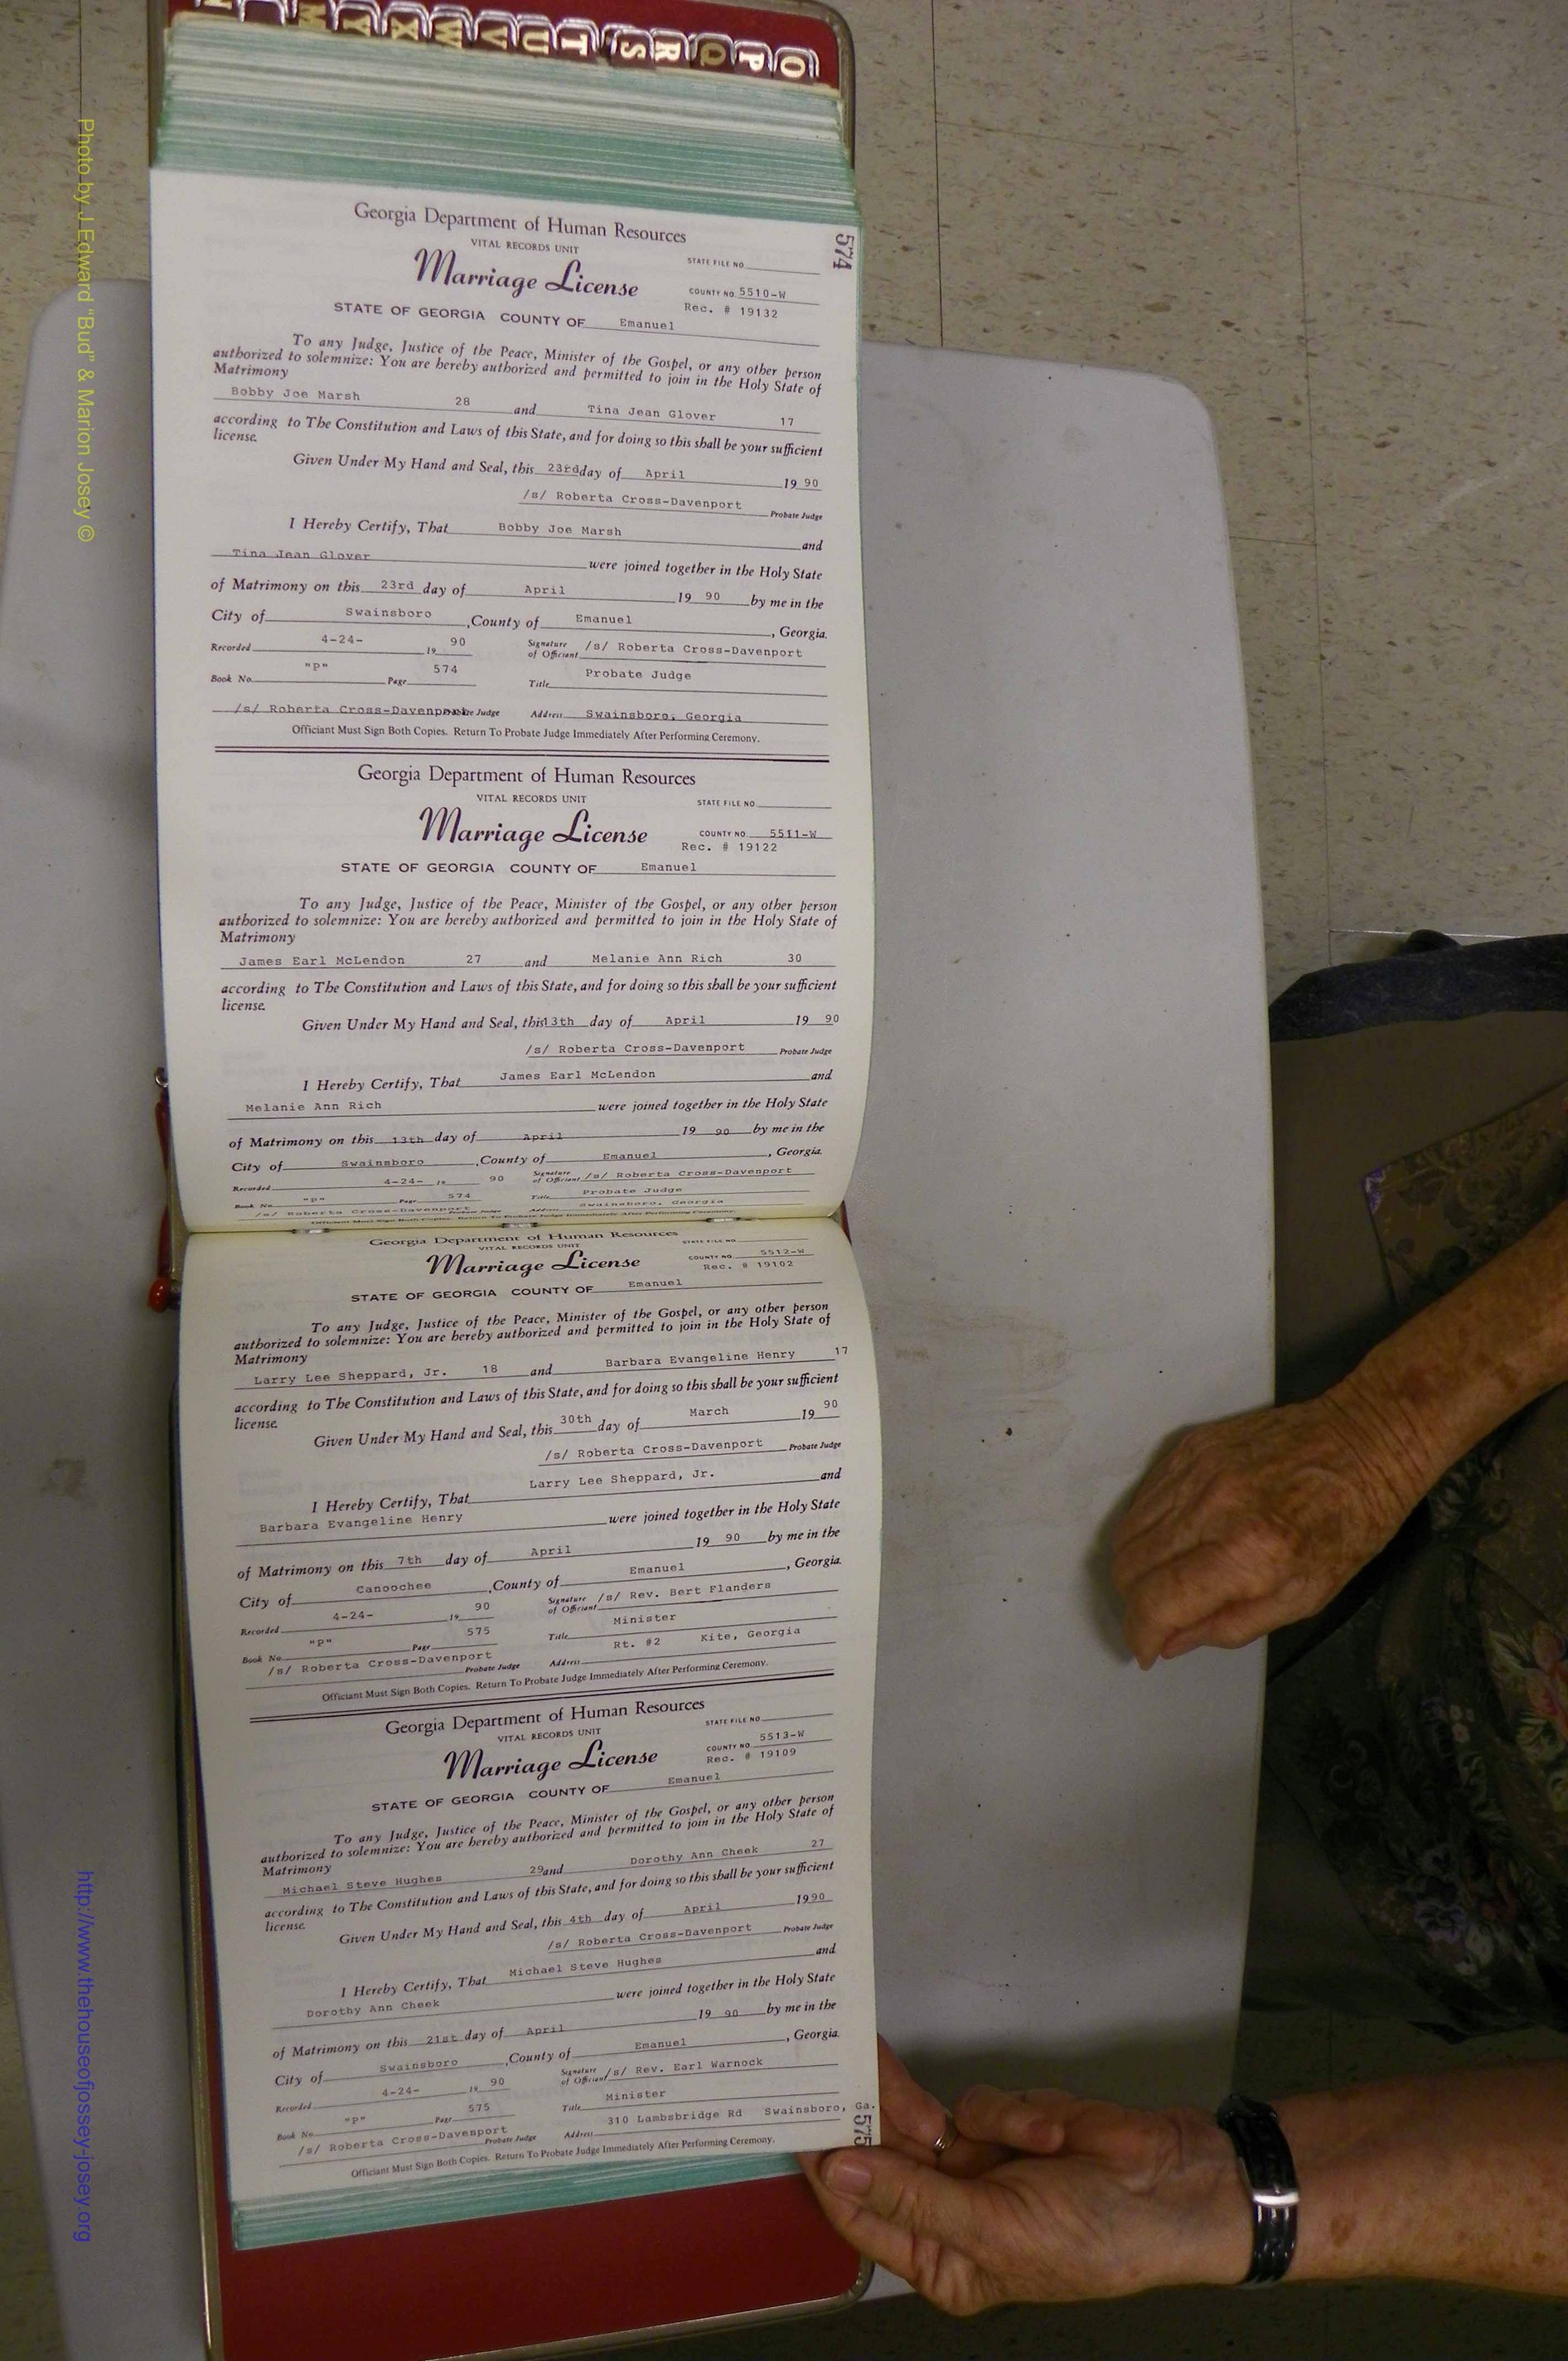 O P Q R S T U V W X Y
574
Georgia Department of Human Resources
VITAL RECORDS UNIT
Marriage License
STATE FILE NO.
COUNTY NO. 5510-W
Rec. # 19132
STATE OF GEORGIA COUNTY OF Emanuel
To any Judge, Justice of the Peace, Minister of the Gospel, or any other person
authorized to solemnize: You are hereby authorized and permitted to join in the Holy State of
Matrimony
Bobby Joe Marsh 28 and Tina Jean Glover 17
according to The Constitution and Laws of this State, and for doing so this shall be your sufficient
license.
Given Under My Hand and Seal, this 23rd day of April 19 90
/s/ Roberta Cross-Davenport Probate Judge
I Hereby Certify, That Bobby Joe Marsh and
Tina Jean Glover were joined together in the Holy State
of Matrimony on this 23rd day of April 19 90 by me in the
City of Swainsboro, County of Emanuel, Georgia.
Recorded 4-24- 19 90 Signature of Officiant /s/ Roberta Cross-Davenport
Book No. "P" Page 574 Title Probate Judge
/s/ Roberta Cross-Davenport Probate Judge Address Swainsboro, Georgia
Officiant Must Sign Both Copies. Return To Probate Judge Immediately After Performing Ceremony.
Georgia Department of Human Resources
VITAL RECORDS UNIT
Marriage License
STATE FILE NO.
COUNTY NO. 5511-W
Rec. # 19122
STATE OF GEORGIA COUNTY OF Emanuel
To any Judge, Justice of the Peace, Minister of the Gospel, or any other person
authorized to solemnize: You are hereby authorized and permitted to join in the Holy State of
Matrimony
James Earl McLendon 27 and Melanie Ann Rich 30
according to The Constitution and Laws of this State, and for doing so this shall be your sufficient
license.
Given Under My Hand and Seal, this 13th day of April 19 90
/s/ Roberta Cross-Davenport Probate Judge
I Hereby Certify, That James Earl McLendon and
Melanie Ann Rich were joined together in the Holy State
of Matrimony on this 13th day of April 19 90 by me in the
City of Swainsboro, County of Emanuel, Georgia.
Recorded 4-24- 19 90 Signature of Officiant /s/ Roberta Cross-Davenport
Book No. "P" Page 574 Title Probate Judge
/s/ Roberta Cross-Davenport Probate Judge Address Swainsboro, Georgia
Officiant Must Sign Both Copies. Return To Probate Judge Immediately After Performing Ceremony.
Georgia Department of Human Resources
VITAL RECORDS UNIT
Marriage License
STATE FILE NO.
COUNTY NO. 5512-W
Rec. # 19102
STATE OF GEORGIA COUNTY OF Emanuel
To any Judge, Justice of the Peace, Minister of the Gospel, or any other person
authorized to solemnize: You are hereby authorized and permitted to join in the Holy State of
Matrimony
Larry Lee Sheppard, Jr. 18 and Barbara Evangeline Henry 17
according to The Constitution and Laws of this State, and for doing so this shall be your sufficient
license.
Given Under My Hand and Seal, this 30th day of March 19 90
/s/ Roberta Cross-Davenport Probate Judge
I Hereby Certify, That Larry Lee Sheppard, Jr. and
Barbara Evangeline Henry were joined together in the Holy State
of Matrimony on this 7th day of April 19 90 by me in the
City of Canoochee, County of Emanuel, Georgia.
Recorded 4-24- 19 90 Signature of Officiant /s/ Rev. Bert Flanders
Book No. "P" Page 575 Title Minister
/s/ Roberta Cross-Davenport Probate Judge Address Rt. #2 Kite, Georgia
Officiant Must Sign Both Copies. Return To Probate Judge Immediately After Performing Ceremony.
Georgia Department of Human Resources
VITAL RECORDS UNIT
Marriage License
STATE FILE NO.
COUNTY NO. 5513-W
Rec. # 19109
STATE OF GEORGIA COUNTY OF Emanuel
To any Judge, Justice of the Peace, Minister of the Gospel, or any other person
authorized to solemnize: You are hereby authorized and permitted to join in the Holy State of
Matrimony
Michael Steve Hughes 29 and Dorothy Ann Cheek 27
according to The Constitution and Laws of this State, and for doing so this shall be your sufficient
license.
Given Under My Hand and Seal, this 4th day of April 19 90
/s/ Roberta Cross-Davenport Probate Judge
I Hereby Certify, That Michael Steve Hughes and
Dorothy Ann Cheek were joined together in the Holy State
of Matrimony on this 21st day of April 19 90 by me in the
City of Swainsboro, County of Emanuel, Georgia.
Recorded 4-24- 19 90 Signature of Officiant /s/ Rev. Earl Warnock
Book No. "P" Page 575 Title Minister
/s/ Roberta Cross-Davenport Probate Judge Address 310 Lambsbridge Rd Swainsboro, Ga.
Officiant Must Sign Both Copies. Return To Probate Judge Immediately After Performing Ceremony.
575
Photo by J Edward "Bud" & Marion Josey ©
http://www.thehouseofjossey-josey.org